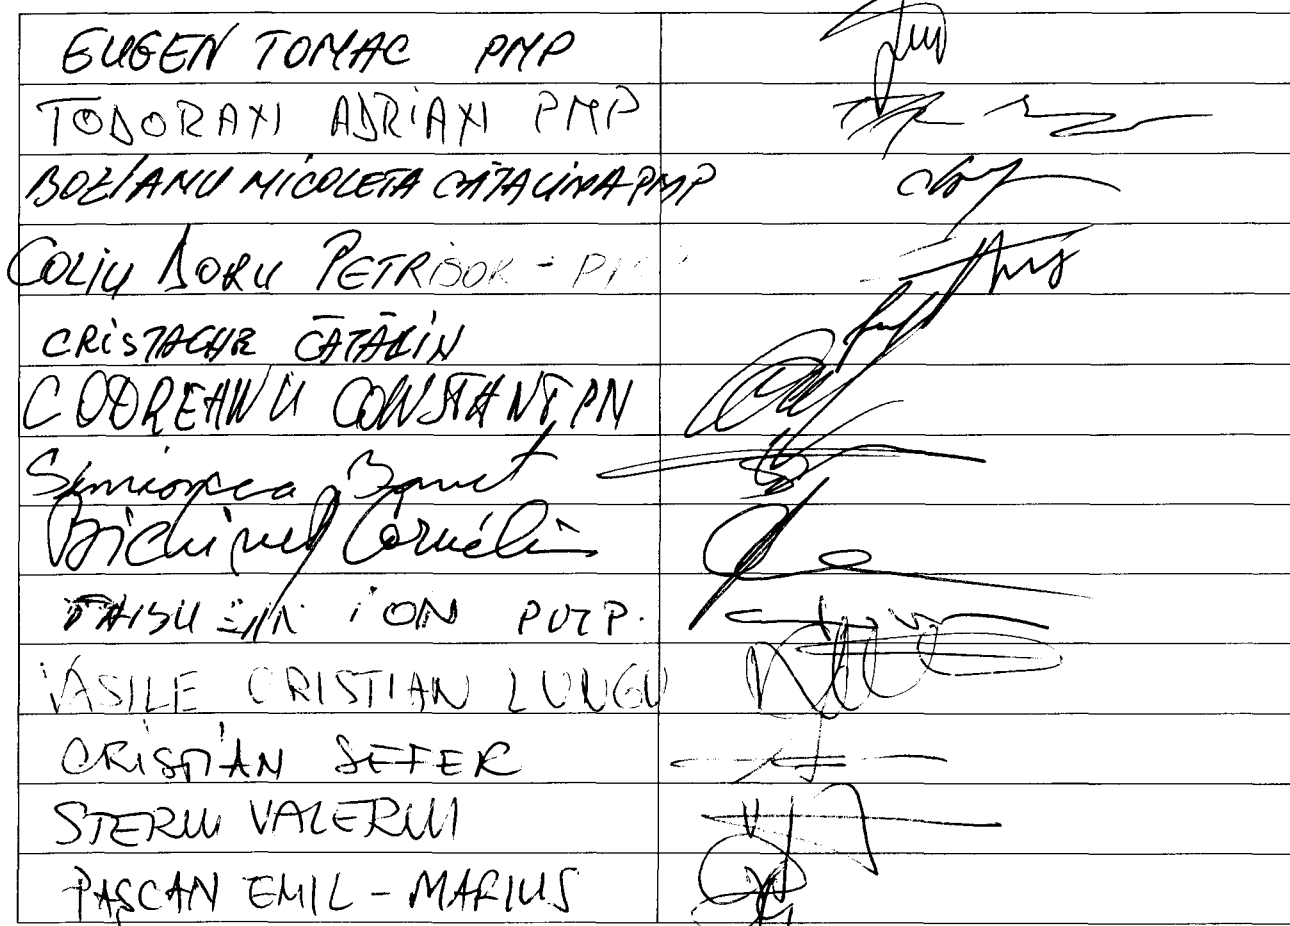 EUGEN TOMAC PMP
TODORAN ADRIAN PMP
BOZIANU NICOLETA CĂTĂLINA-PMP
COLIU DORU PETRISOR - PMP
CRISTACHE CĂTĂLIN
CODREANU CONSTANTIN
Simionca Ionut
Bichinet Corneliu
ION PMP.
VASILE CRISTIAN LUNGU
CRISTIAN SEFER
STERIU VALERIU
PAȘCAN EMIL - MARIUS